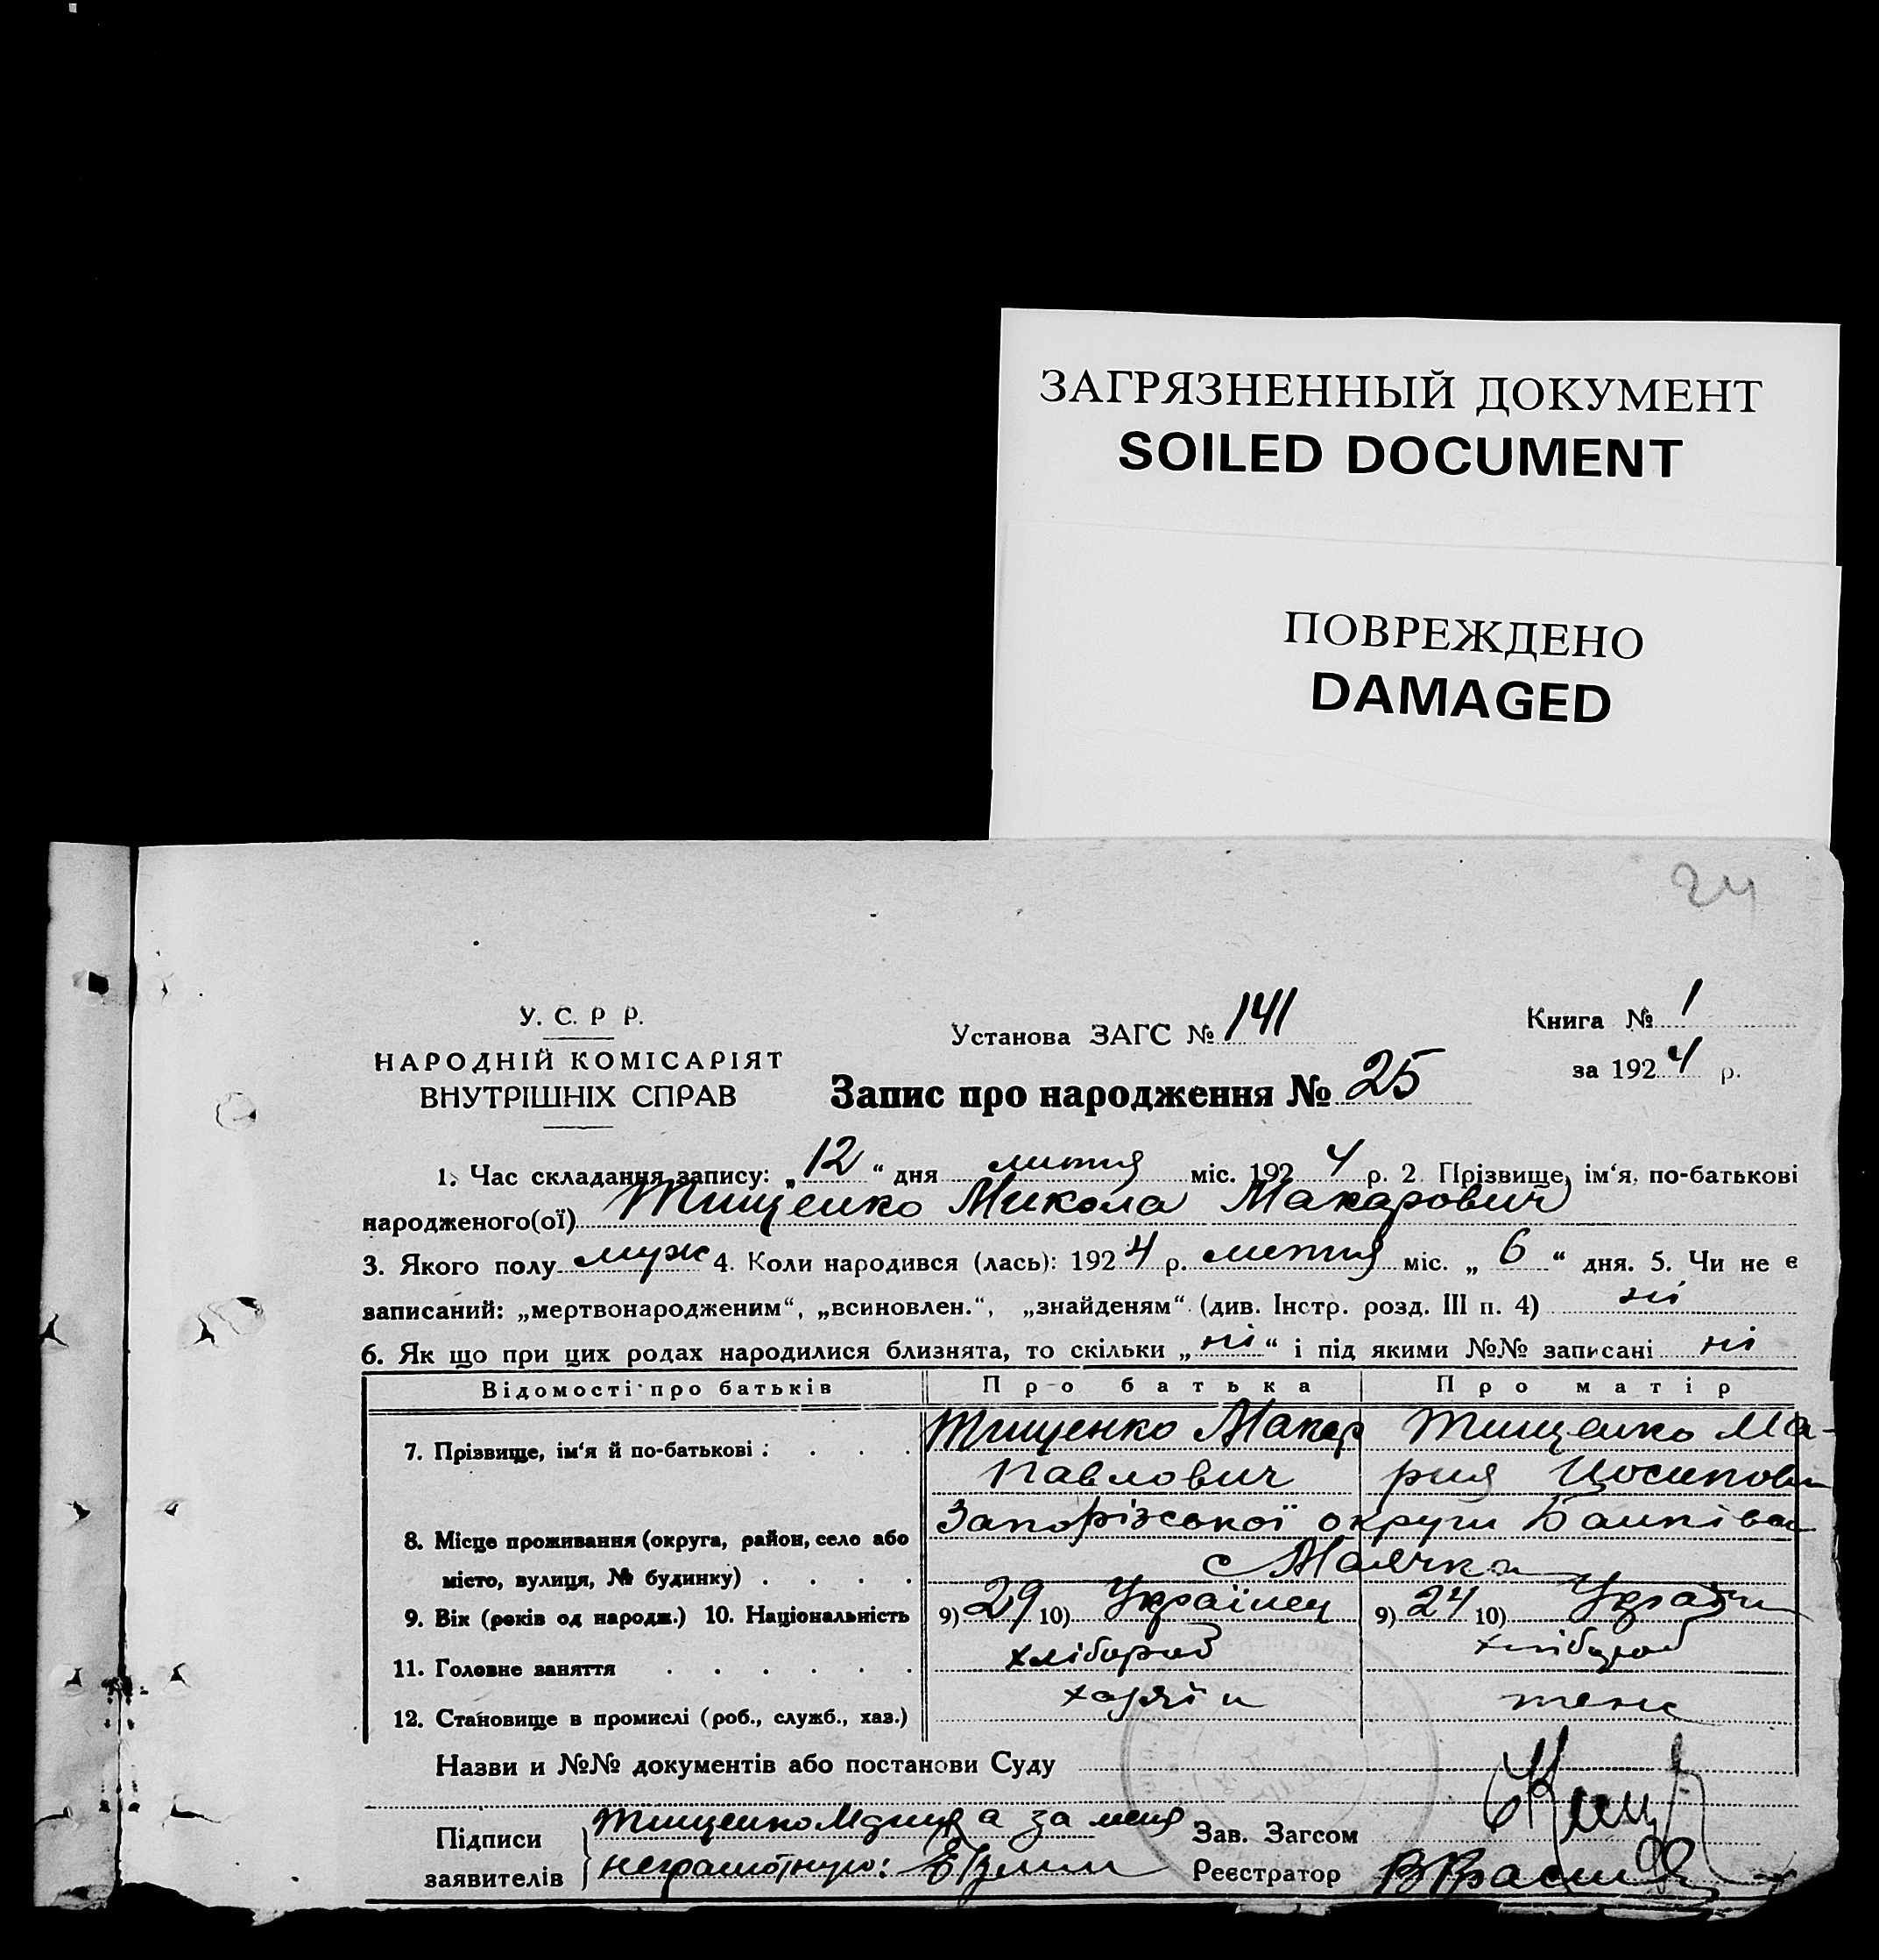 ЗАГРЯЗНЕННЫЙ ДОКУМЕНТ
SOILED DOCUMENT
ПОВРЕЖДЕНО
DAMAGED
24
У. С. Р Р.
НАРОДНІЙ КОМІСАРІЯТ
ВНУТРІШНІХ СПРАВ
Установа ЗАГС № 141
Запис про народження № 25
Книга № 1
за 1924 р.
1. Час складання запису: „12“ дня лютня міс. 1924 р. 2. Прізвище, ім‘я, по-батькові
народженого(ої) Тищенко Микола Макарович
3. Якого полу муж 4. Коли народився (лась): 1924 р. лютня міс. „ 6 “ дня. 5. Чи не є
записаний: „мертвонародженим“, „всиновлен.“, „знайденям“ (див. Інстр. розд. III п. 4) ні
6. Як що при цих родах народилися близнята, то скільки „ні“ і під якими №№ записані ні
Відомості про батьків Про батька Про матір
7. Прізвище, ім‘я й по-батькові . . . . Тищенко Макар Тищенко Ма-
Павлович рия
Запорізської округи
8. Місце проживання (округа, район, село або
с Маячка
місто, вулиця, № будинку) . . . .
9. Вік (років од народж.) 10. Національність 9) 29 10) Українец 9) 24 10)
11. Головне заняття . . . . . . хлібороб хлібороб
12. Становище в промислі (роб., служб., хаз.)
Назви и №№ документів або постанови Суду
Підписи Тищенко а за меня Зав. Загсом
заявителів неграмотную: Реєстратор